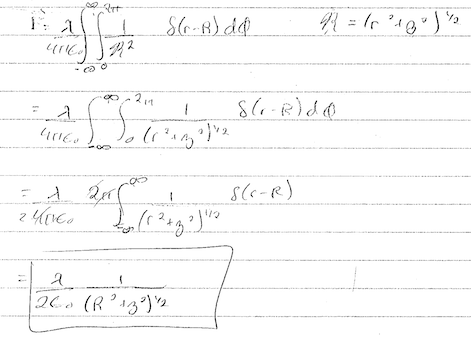 F = λ/4πε₀ ∫_{-∞}^{∞} ∫_{0}^{2π} 1/𝓇² δ(r-R) dφ   𝓇 = (r² + z²)^{1/2}
= λ/4πε₀ ∫_{-∞}^{∞} ∫_{0}^{2π} 1/(r² + z²)^{1/2} δ(r-R) dφ
= λ/2 4πε₀ 2π ∫_{-∞}^{∞} 1/(r² + z²)^{1/2} δ(r-R)
= λ/2ε₀ 1/(R² + z²)^{1/2}